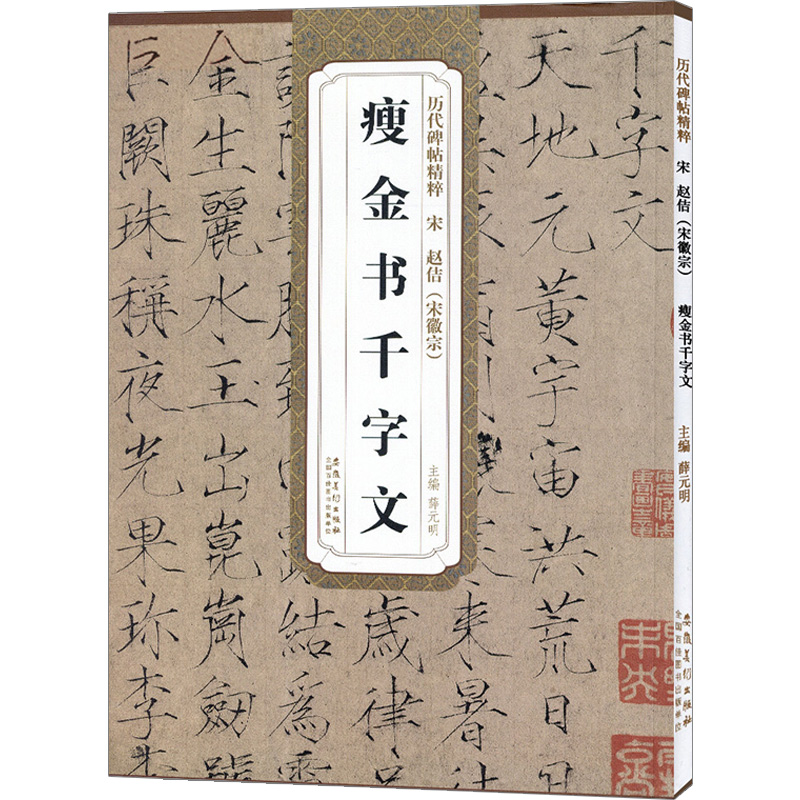 历代碑帖精粹 宋 赵佶（宋徽宗）
主编 薛元明
瘦金书千字文
安徽美术出版社
全国百佳图书出版单位
历代碑帖精粹 宋 赵佶（宋徽宗） 瘦金书千字文 主编 薛元明
安徽美术出版社
全国百佳图书出版单位
千字文
天地元黃宇宙洪荒日
來暑往
歲律呂
結爲
金生麗水玉出崑崗劒號
巨闕珠稱夜光果珍李柰